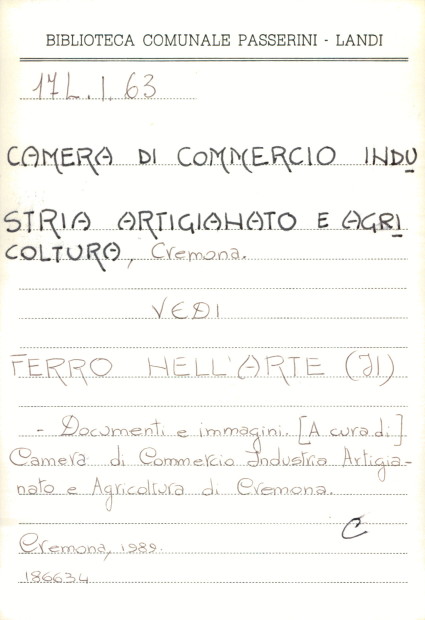 BIBLIOTECA COMUNALE PASSERINI - LANDI
17L.I.63
CAMERA DI COMMERCIO INDU
STRIA ARTIGIANATO E AGRI
COLTURA, Cremona.
VEDI
FERRO NELL'ARTE (Il)
- Documenti e immagini. [A cura di]
Camera di Commercio Industria Artigia-
nato e Agricoltura di Cremona.
C
Cremona, 1989.
186634